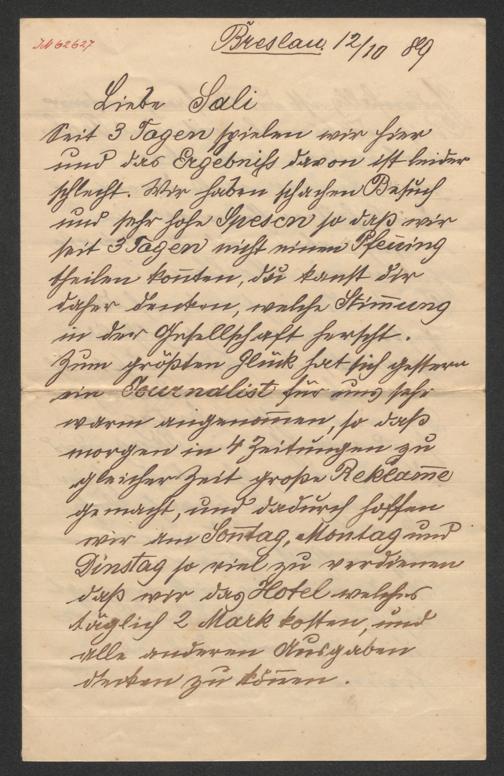 IN 62627
Breslau 12/10 89
Liebe Sali
Seit 3 Tagen spielen wir hier
und das Ergebniß davon ist leider
schlecht. Wir haben schwachen Besuch
und sehr hohe Spesen so daß wir
seit 3 Tagen nicht einen Pfening
theilen konnten, du kanst dir
daher denken, welche Stim̅ung
in der Gesellschaft herscht.
Zum größten Glück hat sich gestern
ein Journalist für uns sehr
warm angenom̅en, so daß
morgen in 4 Zeitungen zu
gleicher Zeit große Reklame
gemacht, und dadurch hoffen
wir am Son̅tag, Montag und
Dinstag so viel zu verdienen
daß wir das Hotel welches
täglich 2 Mark kosten, und
alle anderen Ausgaben
decken zu kön̅en.